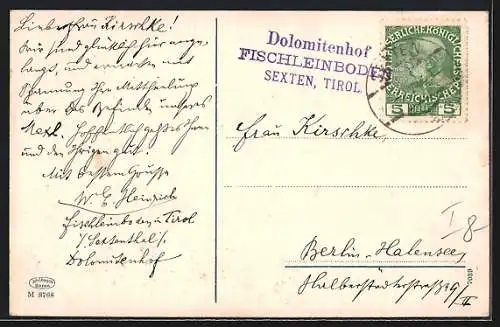 Liebe Frau Kirschke!
Wir sind glücklich hier ange-
langt, und erwarten mit
Spannung Ihre Mittheilung
über das Befinden unseres
Mexl. Hoffentlich geht es Ihnen
und den Ihrigen gut.
Mit bestem Grusse
W. E. Heinrich
Fischleinboden in Tirol
/: Sextenthal :/
Dolomitenhof
M 8768
Dolomitenhof
FISCHLEINBODEN
SEXTEN, TIROL.
KAISERLICHE KÖNIGLICHE
ÖSTERREICHISCHE POST
5 5
Frau Kirschke,
I 8
Berlin-Halensee,
Halberstädterstraße 9/II